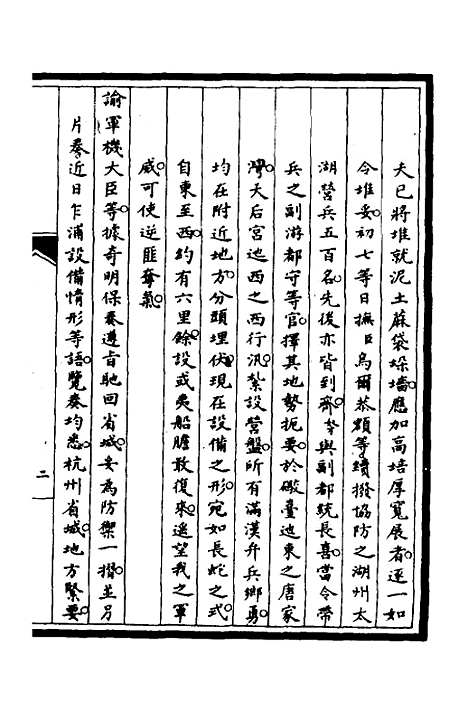 夫已將堆就泥土蔴袋垜墻應加高培厚寬展者逐一如
今堆妥初七等日撫臣烏爾恭額等續撥協防之湖州太
湖營兵五百名先後亦皆到齊䓁與副都統長喜當令帶
兵之副游都守等官擇其地勢扼要於礮臺迆東之唐家
灣天后宮迆西之西行汛紥設營盤所有滿漢弁兵鄉勇
均在附近地方分頭埋伏現在設備之形宛如長蛇之式
自東至西約有六里餘設或夷船膽敢復來遥望我之軍
威可使逆匪奪氣
諭軍機大臣等據奇明保奏遵旨馳回省城妥為防禦一摺並另
片奏近日乍浦設備情形等語覽奏均悉杭州省城地方緊要
二